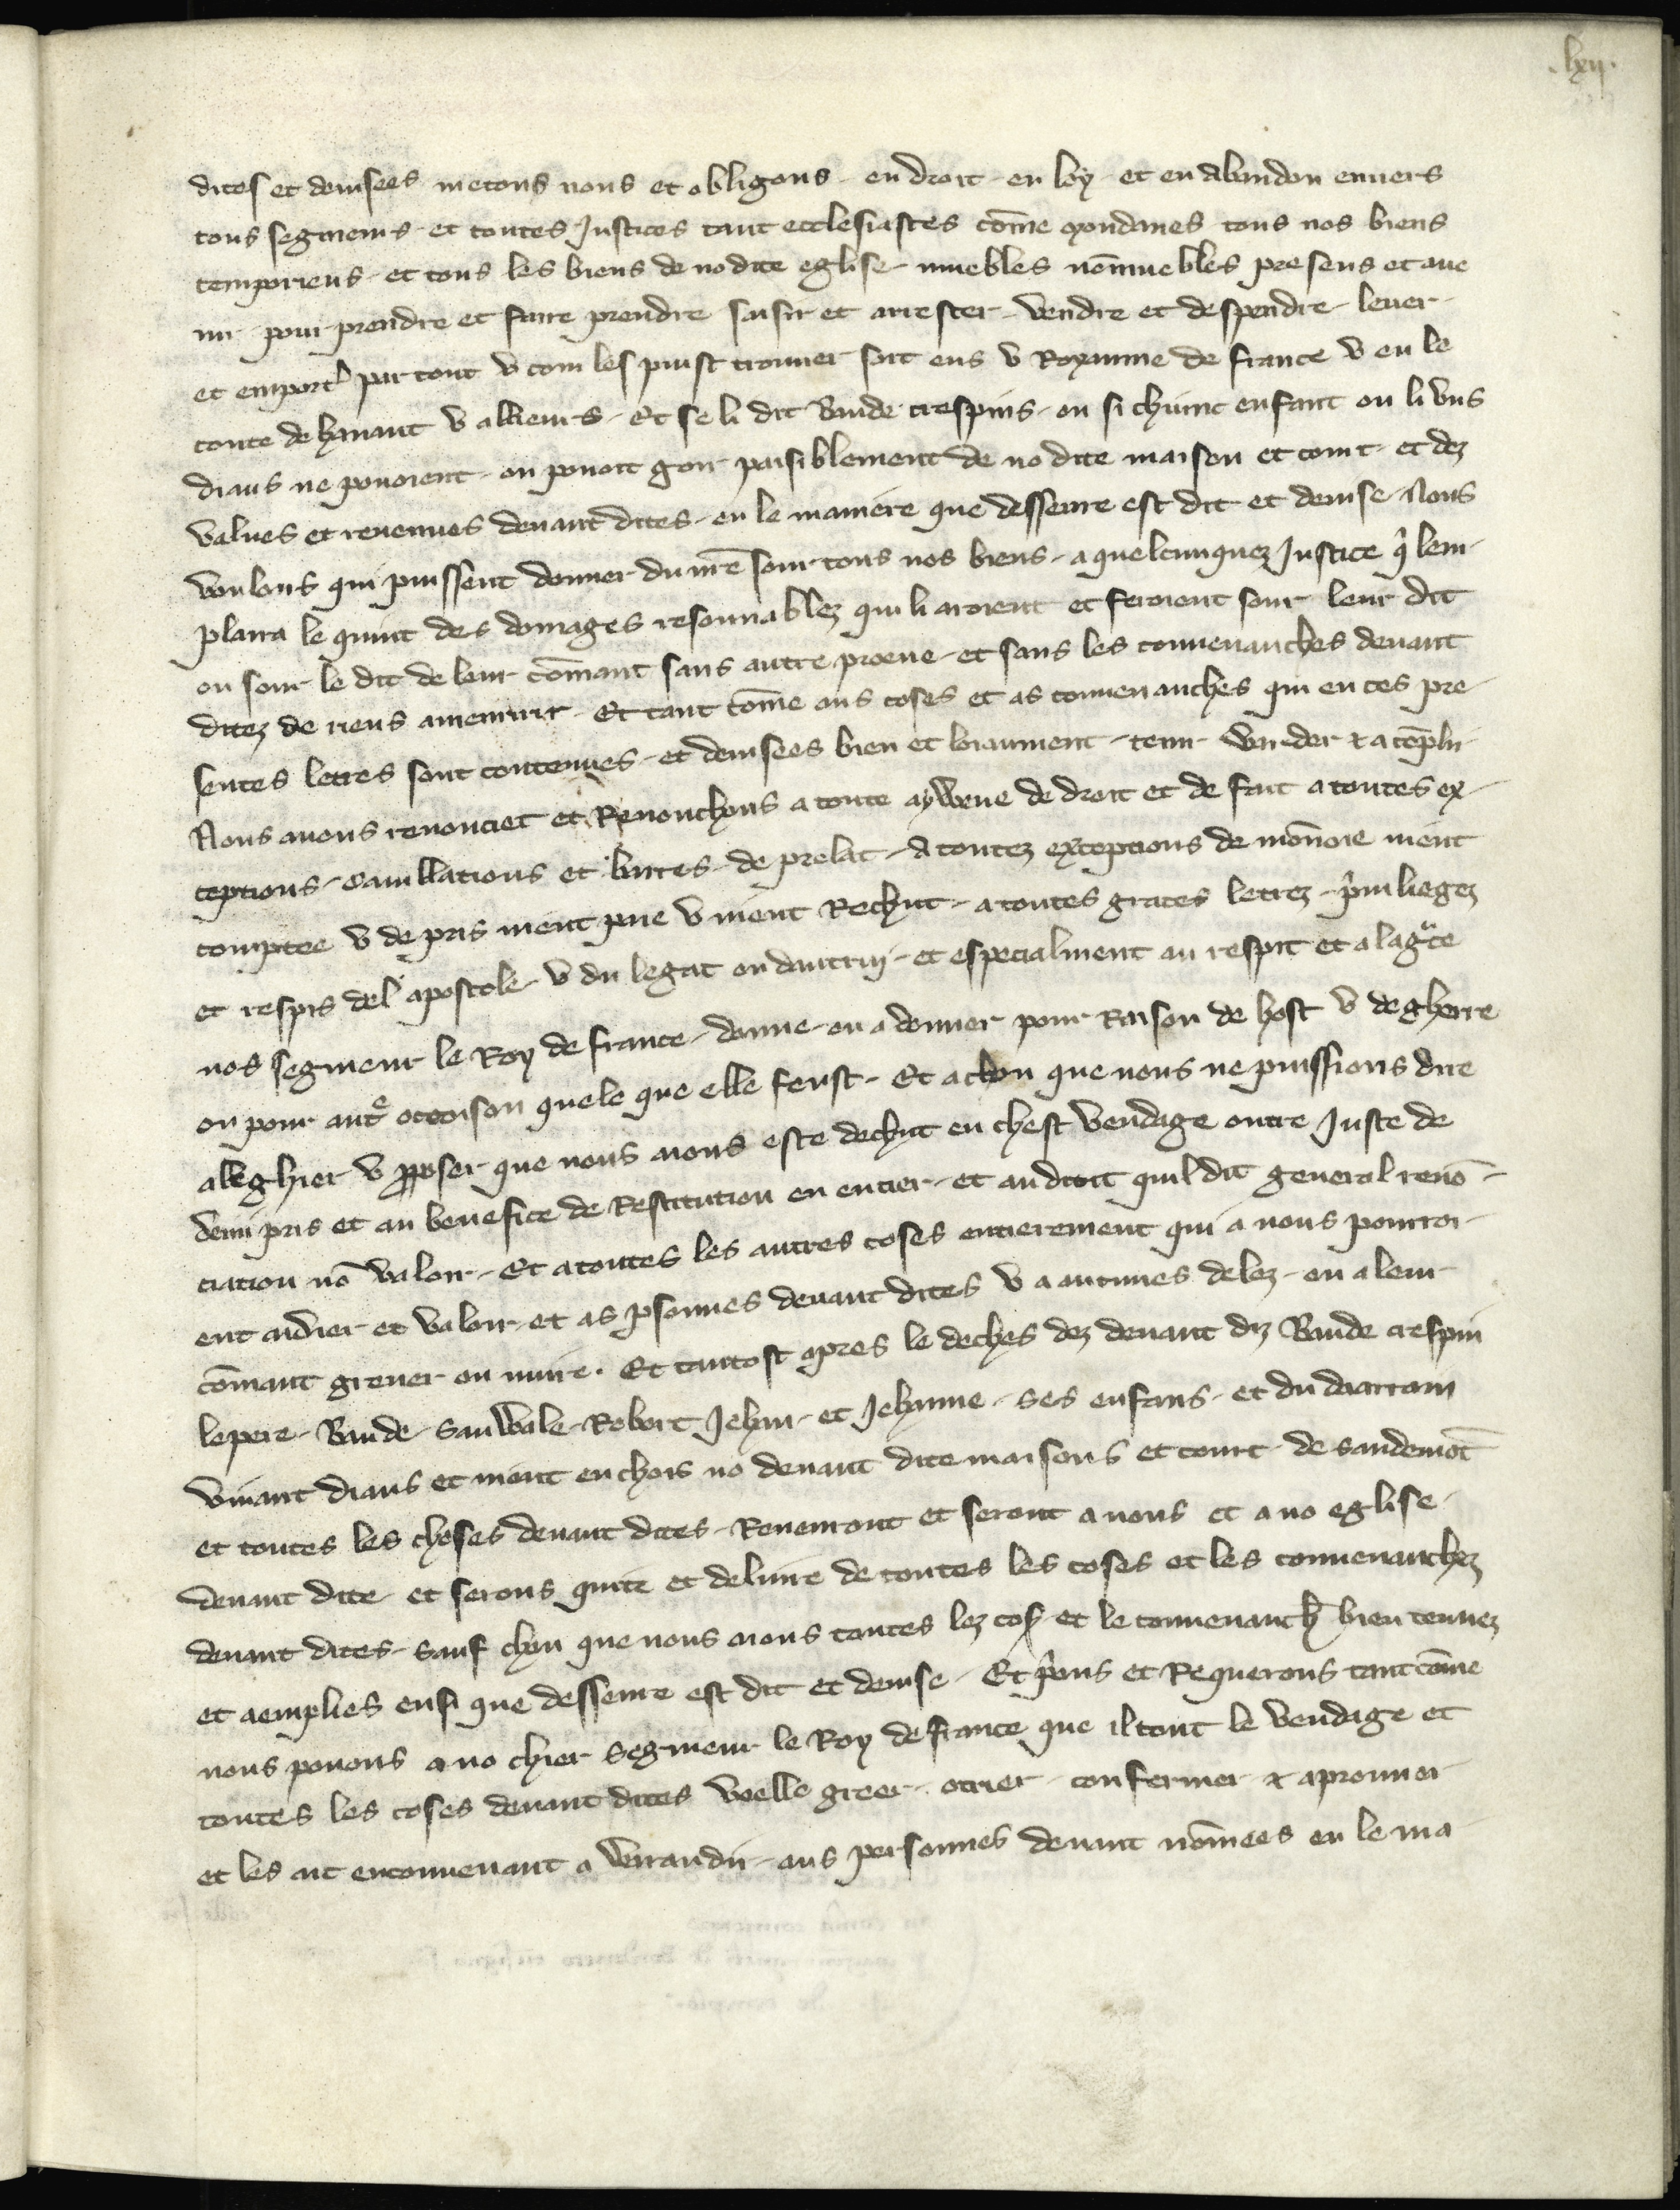 .lxii.
dites et deuisees metons nous et obligons - en droit - en loy - et en abandon enuers
tous segneurs - et toutes Justices tant ecclesiastes cōme mondanes tous nos biens
temporieus - et tous les biens de no dite eglise - muebles nōmuebles presens et aue
nir - pour prendre et faire prendre saisir et arrester - vendre et despendre - leuer -
et emport' par tout v com les puist trouuer soit ens v Royaume de france v en le
conte de hanaut v allieurs - Et se li dit Baude crespins - ou si chiunc enfant ou li vns
diaus ne pouoient - ou pouoit goir paisiblement de no dite maison et court - et dez
values et reuenues deuant dites - en le maniere que desseure est dit et deuise - Nous
voulons qui puissent donner du nr̄e sour tous nos biens - a quelcunquez Justice q̄ leur
plaira le quint des domages resonnablez qui li aroient et feroient sour leur dit
ou sour le dit de leur cōmant sans autre proeue - et sans les conuenanches deuant
ditez de riens amenrir - Et tant cōme aus coses et as conuenanches qui en ces pre
sentes lettres sont contenues - et deuisees bien et loiaument - tenir warder & acōplir
Nous auons renonciet et Renonchons a toute aywwe de droit et de fait a toutes ex
ceptions - cauillations et bares - de prelat - A toutez exceptions de mōnoie nient
comptee v de pris nient paie v nient Rechut - a toutes graces letrez - p̄uiliegez
et respis del apostole v du legat ou dautrui - et especialment au respit et a la gr̄ce
nos segneur le Roy de france - donne - ou a donner pour Raison de host v de gherre
ou pour autre ocoison quele que elle feust - Et a chou que nous ne puissions dire
alleghier v p̄poser que nous aions este dechut en chest vendage outre Juste de
demi pris et au benefice de Restitution en entier - et au droit quil dit general renō
ciation nō valoir - Et a toutes les autres coses entierement qui a nous pourroi
ent aidier et valoir - et as p̄sonnes deuant dites v a aucunes delez - ou a leur
cōmant greuer ou nuire . Et tantost apres le deches dez deuant diz Baude crespin
le pere - Baude - Sauwale - Robert Jehan - et Jehanne - ses enfans - et du daarrain
viuant diaus et nient enchois no deuant dite maisons et court - de saudemōt
et toutes les choses deuant dites - Reuenront et seront a nous et a no eglise -
deuant dite - et serons quite et deliure de toutes les coses et les conuenanchez
deuant dites - sauf chou que nous aions toutes lez cos' et le conuenanch' bien tenuez
et aemplies ensi que desseure est dit et deuise - Et p̄ons et Requerons tant cōme
nous pouons a no chier segneur le Roy de france que il tout le vendage et
toutes les coses deuant dites voelle greer - otrier - confermer & aprouuer
et les ait enconuenant a warandir - aus personnes deuant nōmees en le ma